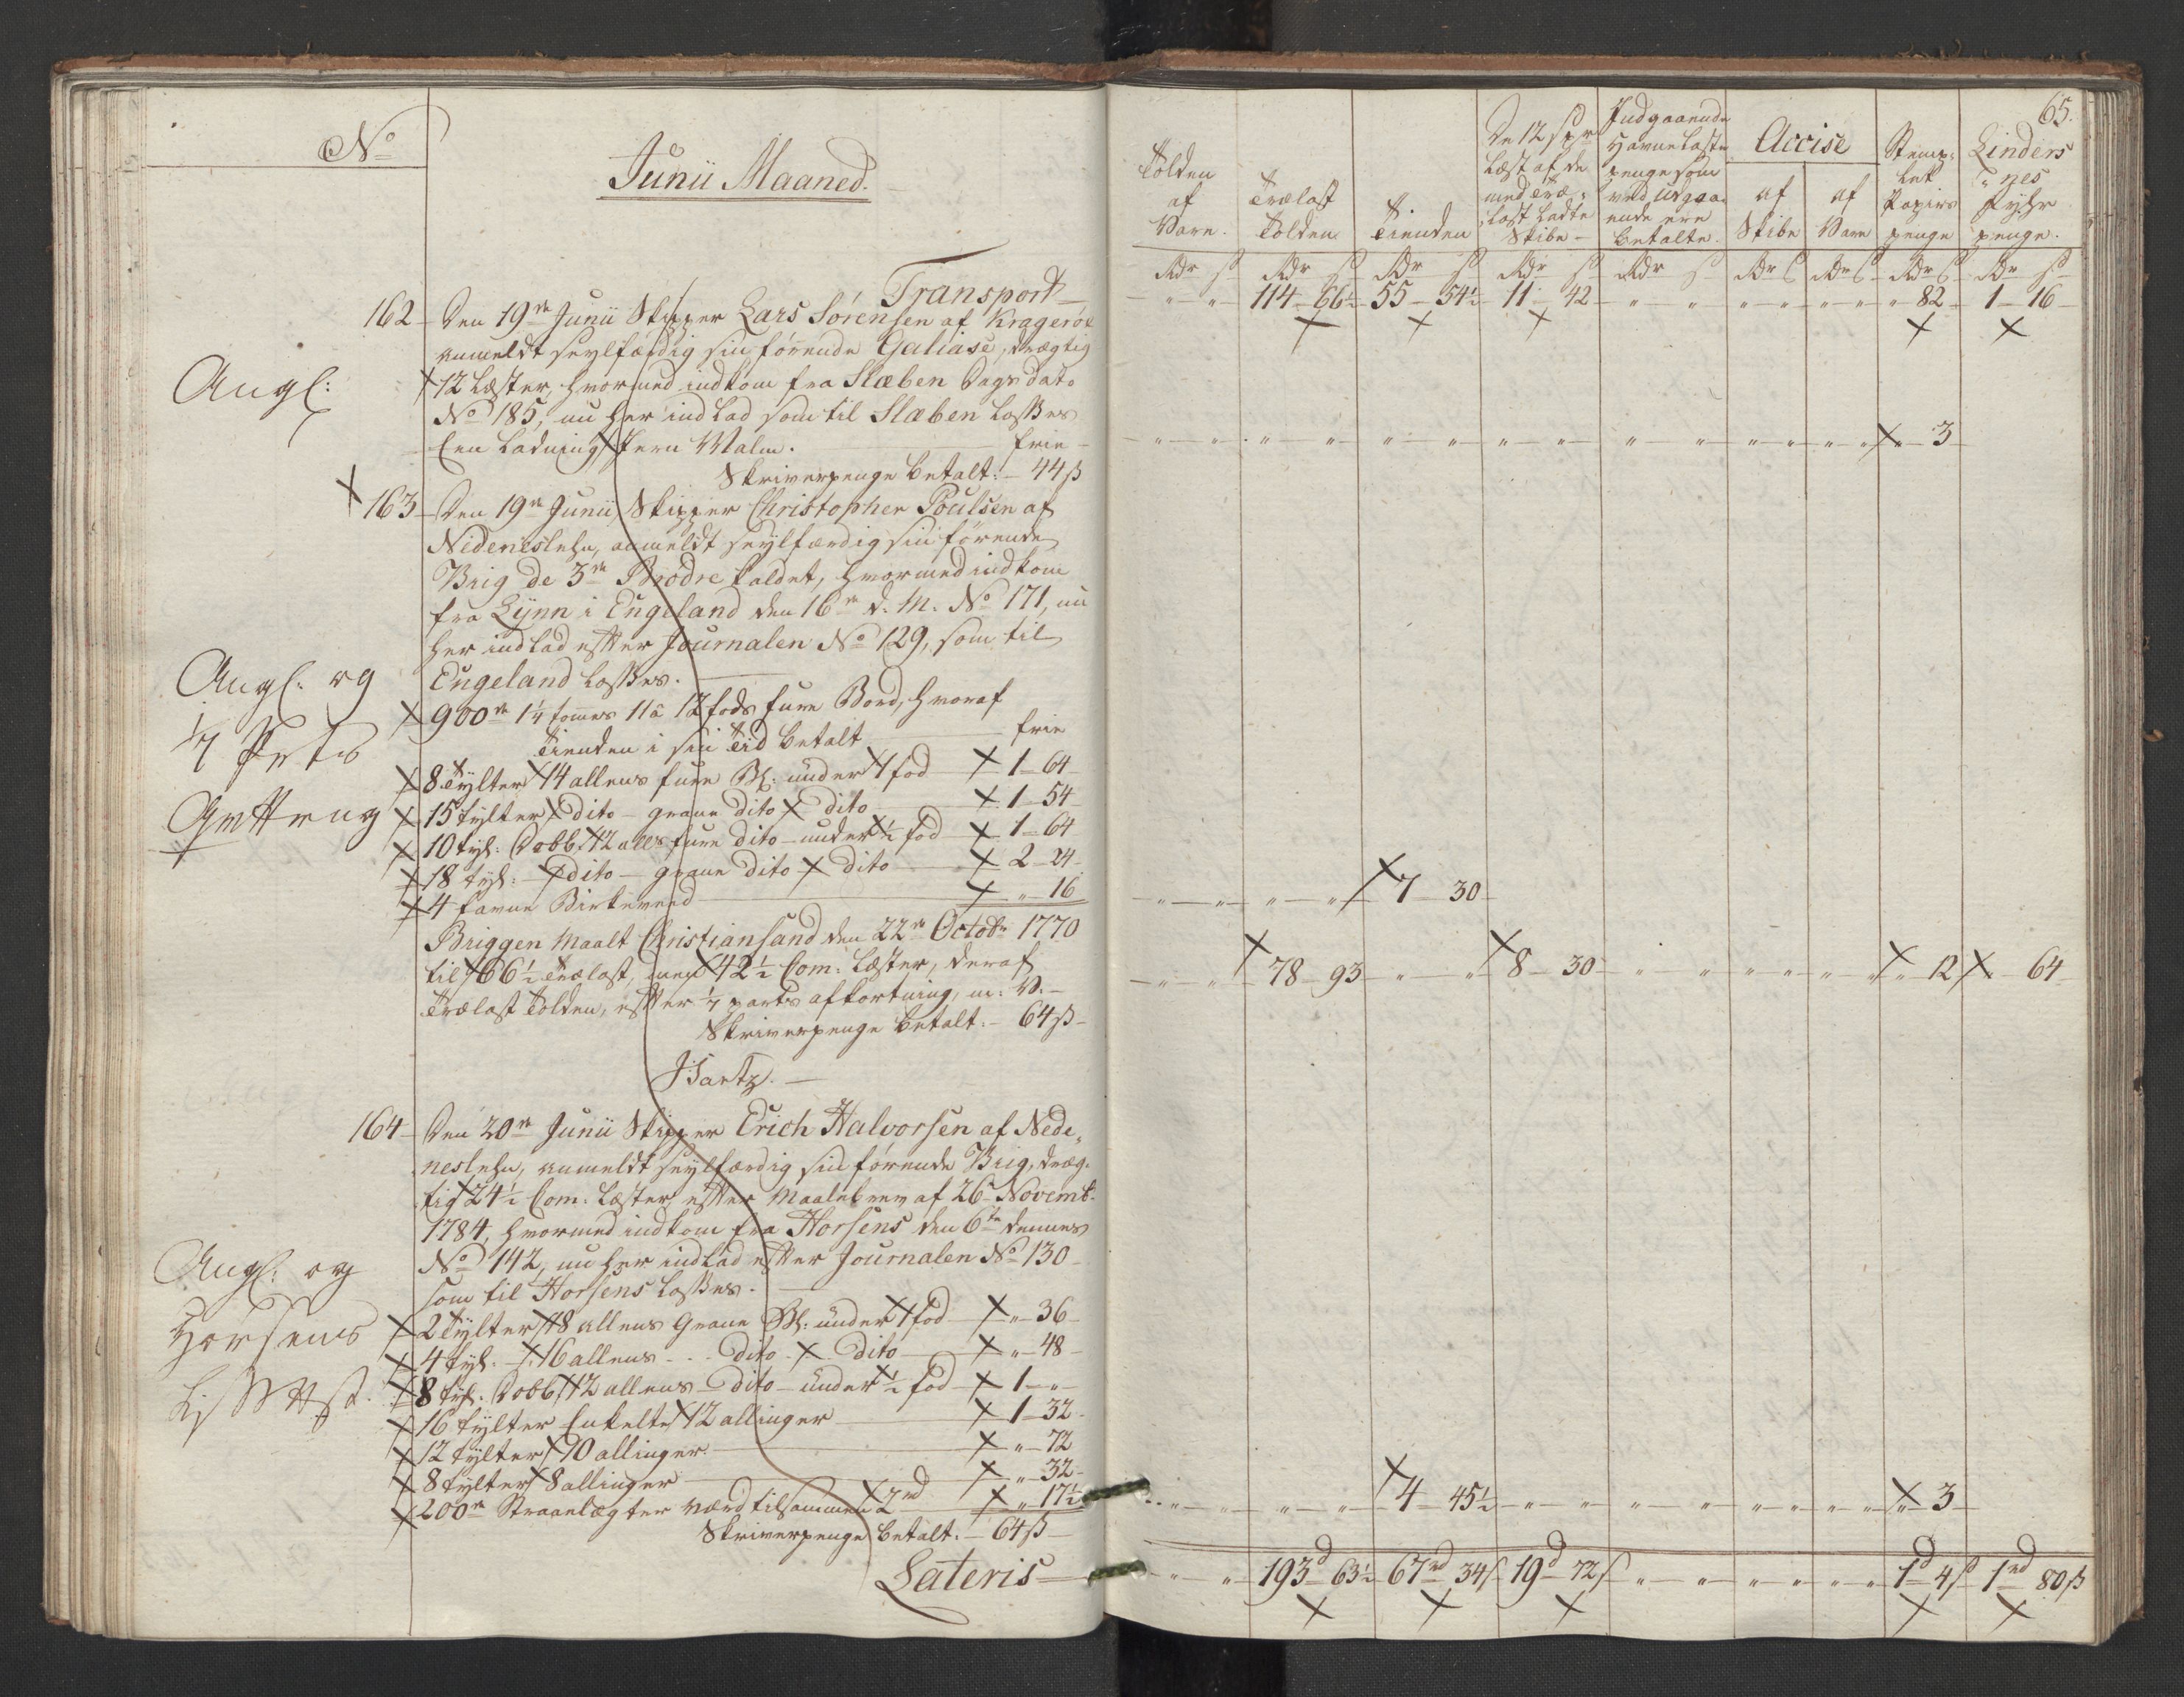 No
Junii Maaned.
Transport
162 Den 19de Junii Skipper Lars Sörensen af Krageröe
anmeldt seylfærdig sin förende Galiase, drægtig
12 Læster, hvormed indkom fra Slæben Dags dato
No 185, nu her indlad som til Slæben Losses
Een Ladning Jern Malm. frie
Skriverpenge betalt: 44 s
Angl:
163 Den 19de Junii Skipper Christopher Poulsen af
Nideneslehn, anmeldt seylfærdig sin förende
Brig de 3de Brödre kaldet, hvormed indkom
fra Lynn i Engeland den 16de d. M. No 171, nu
her indlad efter Journalen No 129, som til
Engeland Losses.
Angl: og
900de 1 1/4 tommes 11 a 12 fods fure Bord, hvoraf
Tienden i sin tid betalt frie
8 Tylter 14 allens fure Bl: under 1 fod 1 - 64
15 tylter dito - grane dito dito 1 - 54
10 tyl: Dobb. 12 alls fure dito - under 1/2 fod 1 - 64
18 tyl: dito - grane dito dito 2 - 24
4 favne Birkeveed " - 16
Briggen Maalt Christiansand den 22de Octobr 1770
til 66 1/2 Trælast, men 42 1/2 Com: Læster, deraf
Trælast Tolden, efter 1/7 parts afkortning, m: V.
Skriverpenge betalt. 64 s
164 Den 20de Junii Skipper Erich Halvorsen af Nede-
neslehn, anmeldt seylfærdig sin förende Brig, dræg-
tig 24 1/2 Com: Læster efter Maalebrev af 26 Novemb.
1784, hvormed indkom fra Horsens den 6te dennes
No 142, nu her indlad efter Journalen No 130
som til Horsens Losses.
Angl: og
Horsens
2 Tylter 18 allens Grane Bl: under 1 fod " - 36
4 tyl. 16 allens . . . dito . dito " - 48
8 tyl. Dobb. 12 allens dito - under 1/2 fod 1 - "
16 tylter Enkelte 12 allinger 1 - 32
12 tylter 10 allinger " - 72
8 tylter 8 allinger " - 32
200de Straanlægter værd tilsammen 2 rd " - 17 1/2
Skriverpenge betalt. 64 s
Lateris
65.
Tolden af Vare.
Trælast Tolden
Tienden
De 12 s pr Læst af de med Træ-last Ladte Skibe
Indgaaende Havne Laste penge som ved Udgaaende ere betalte.
Accise
af Skibe
af Vare
Stemp-let Papirs penge
Linders-nes Fyhr penge.
Rdr s Rdr s Rdr s Rdr s Rdr s Rdr s Rdr s Rdr s Rdr s
" " 114 - 66 1/2 55 - 54 1/2 11 - 42 " " " " " " " 82 1 - 16
" " " " " " " " " " " " " " " 3
" " " " 7 - 30
" " 78 - 93 " " 8 - 30 " " " " " " " 12 " 64
" " " " 4 - 45 1/2 " " " " " " " " " 3
" " 193 d 63 1/2 67 rd 34 s 19 d 72 s " " " " " " 1 d 4 s 1 rd 80 s